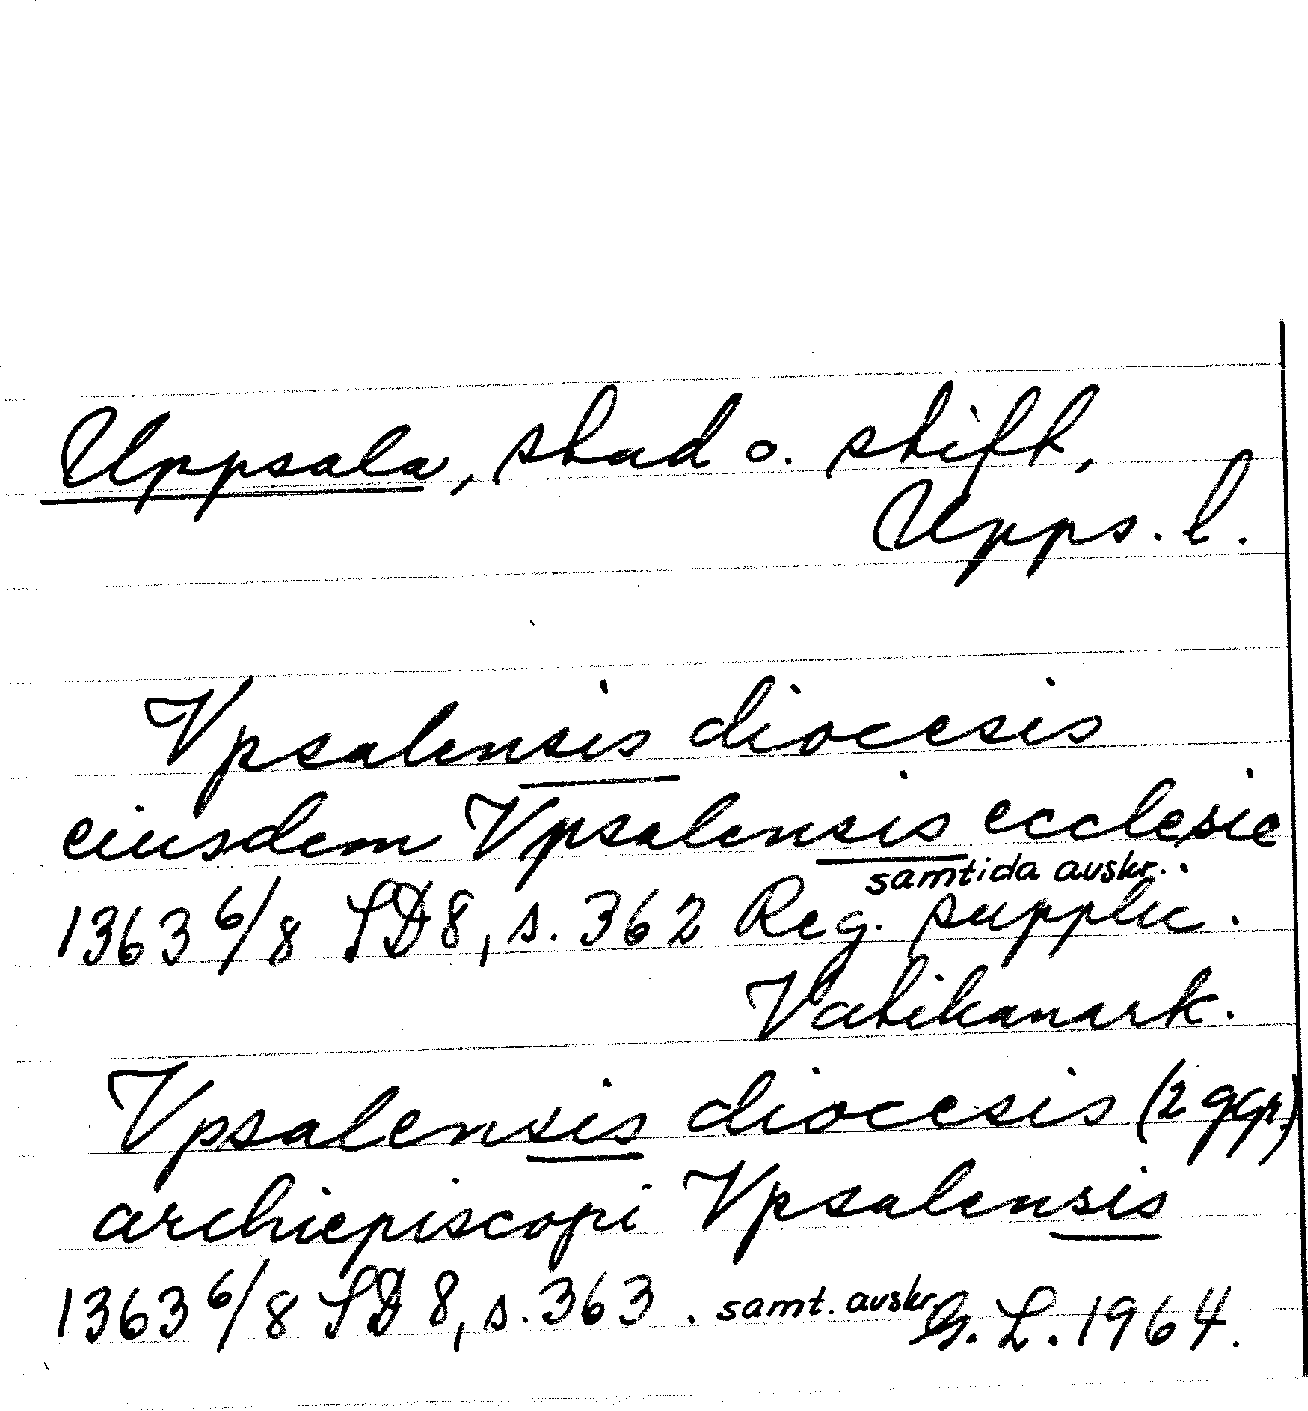 Uppsala, stad o. stift,
Upps. l.
Vpsalensis diocesis
eiusdem Vpsalensis ecclesie
samtida avskr..
1363 6/8 SD 8, s. 362 Reg. supplic.
Vatikanark.
Vpsalensis diocesis (2 ggr)
archiepiscopi Vpsalensis
1363 6/8 SD 8, s. 363. samt. avskr. G. L. 1964.